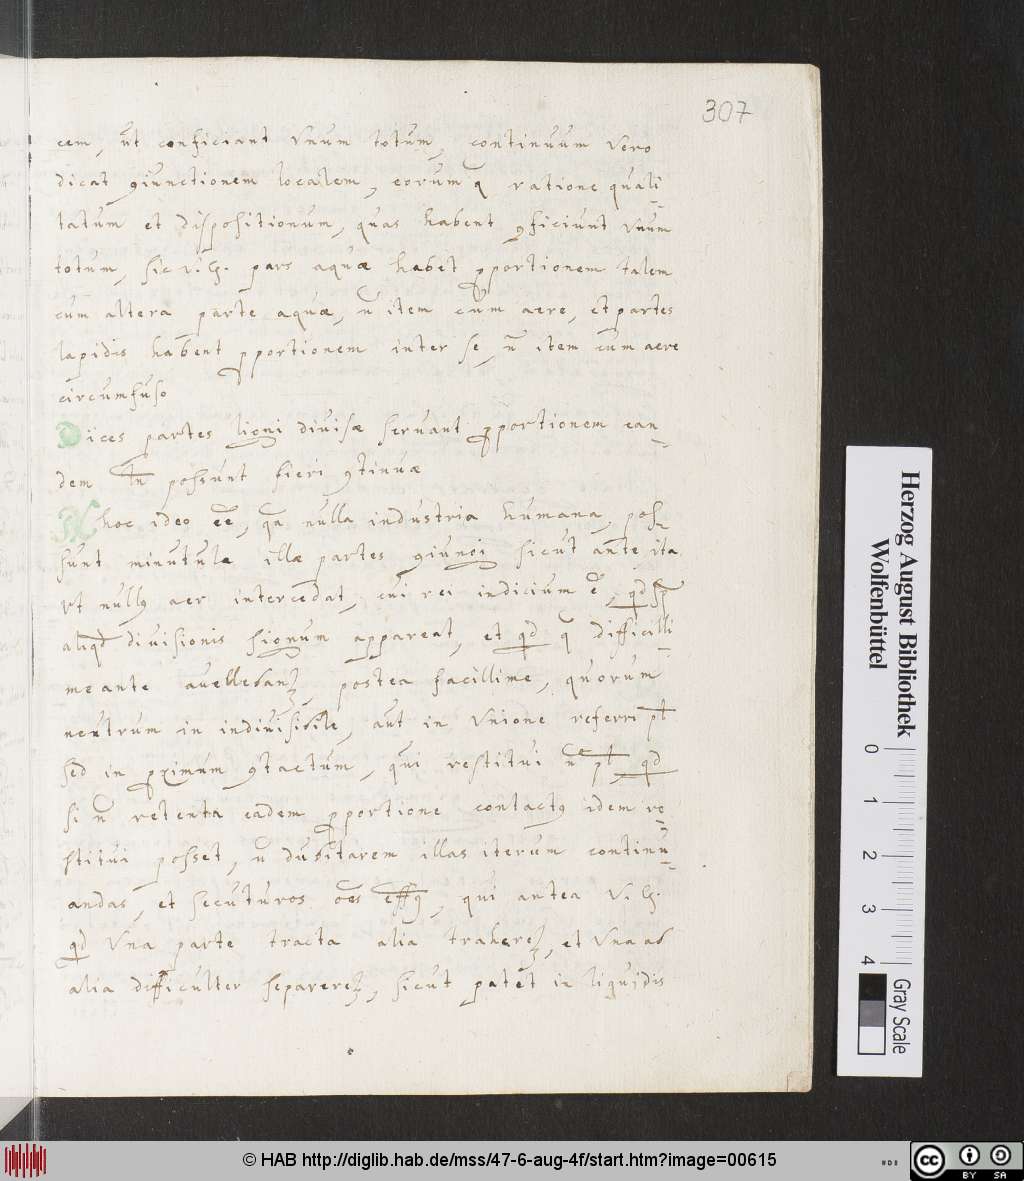 307
cem, ut conficiant unum totum, continuum vero
dicat ꝯiunctionem localem, eorumq ratione quali-
tatum et dispositionum, quas habent ꝯficiunt unum
totum, sic v. G. pars aquæ habet ꝓportionem talem
cum altera parte aquæ, ñ item cum aere, et partes
lapidis habent ꝓportionem inter se, ñ item cum aere
circumfuso
Dices partes ligni divisæ servant ꝓportionem ean-
dem tñ possunt fieri ꝯtinuæ
hoc ideo eē, qa nulla industria humana, pos-
sunt minutulæ illæ partes ꝯiungi sicut ante, ita
vt nullꝰ aer intercedat, cui rei indicium ē, qđ sp
aliqđ divisionis signum appareat, et qđ q difficilli-
me ante avellebantr, postea facillime, quorum
neutrum in indivisibile, aut in unione referri pt
sed in ꝓximum ꝯtactum, qui restitui ñ pt, qđ
si ñ retenta eadem ꝓportione contactꝰ idem re-
stitui posset, ñ dubitarem illas iterum continu-
andas, et secuturos oēs effꝰ, qui antea v. G.
qđ una parte tracta alia traheretr, et una ab
alia difficulter separeretr, sicut patet in liquidis
Herzog August Bibliothek
Wolfenbüttel
0 1 2 3 4
Gray Scale
© HAB http://diglib.hab.de/mss/47-6-aug-4f/start.htm?image=00615
cc BY SA